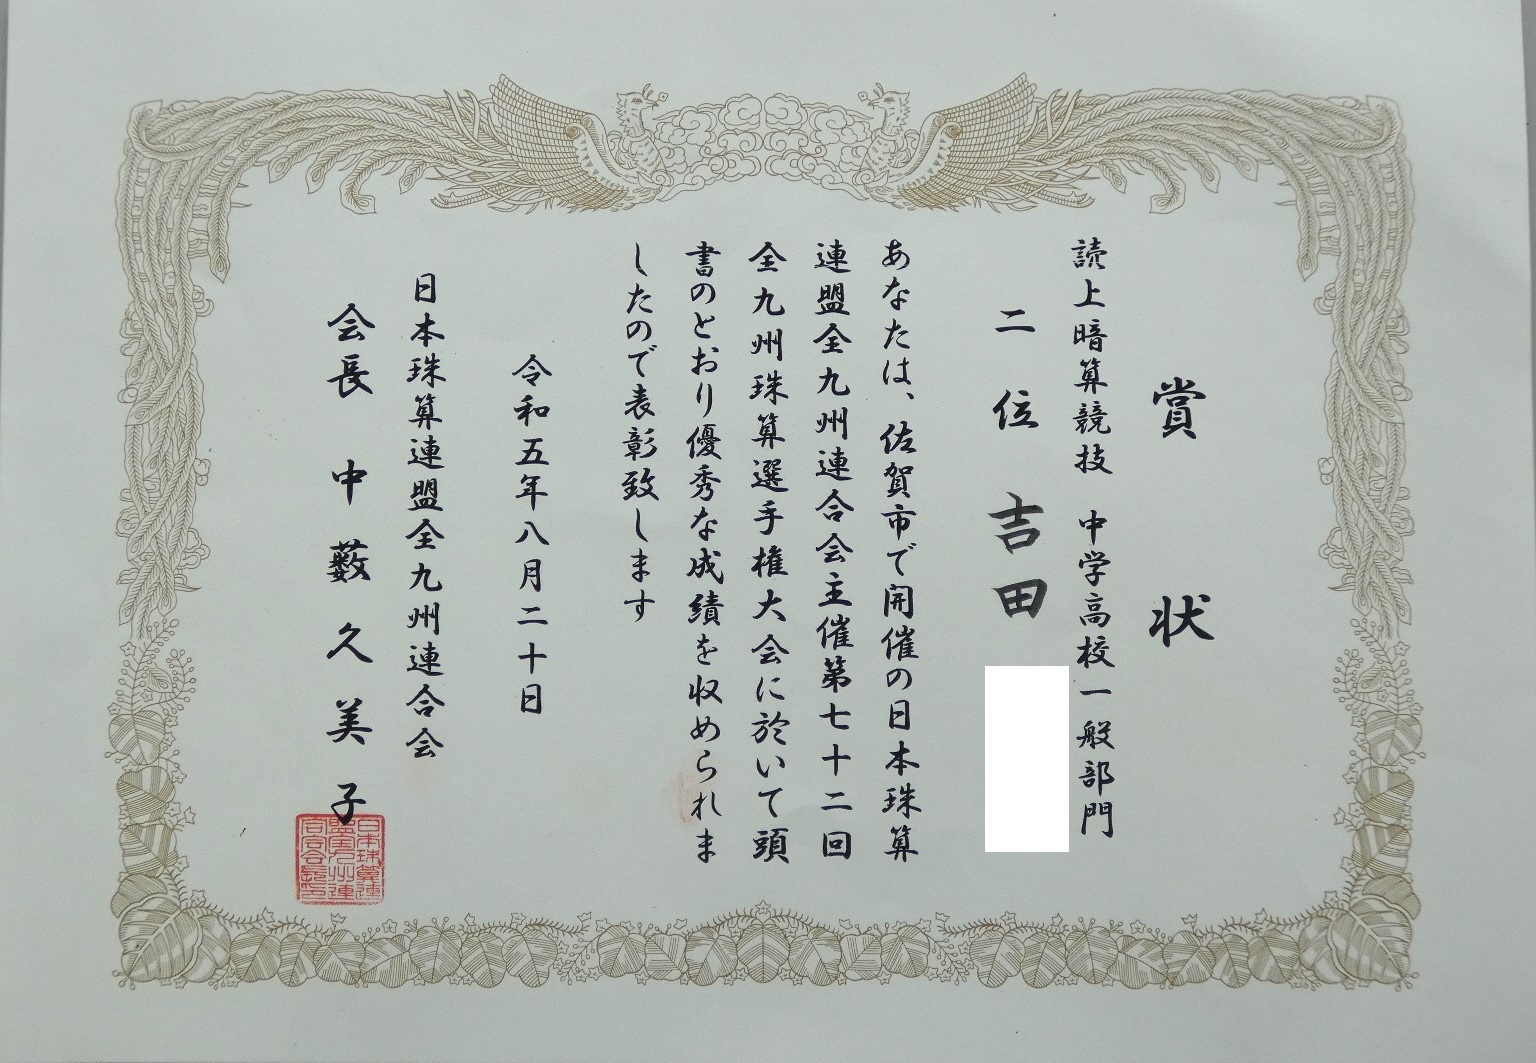 賞状
読上暗算競技 中学高校一般部門
二位 吉田
あなたは、佐賀市で開催の日本珠算
連盟全九州連合会主催第七十二回
全九州珠算選手権大会に於いて頭
書のとおり優秀な成績を収められま
したので表彰致します
令和五年八月二十日
日本珠算連盟全九州連合会
会長 中薮久美子
日本珠算連
盟全九州連
合会会長印